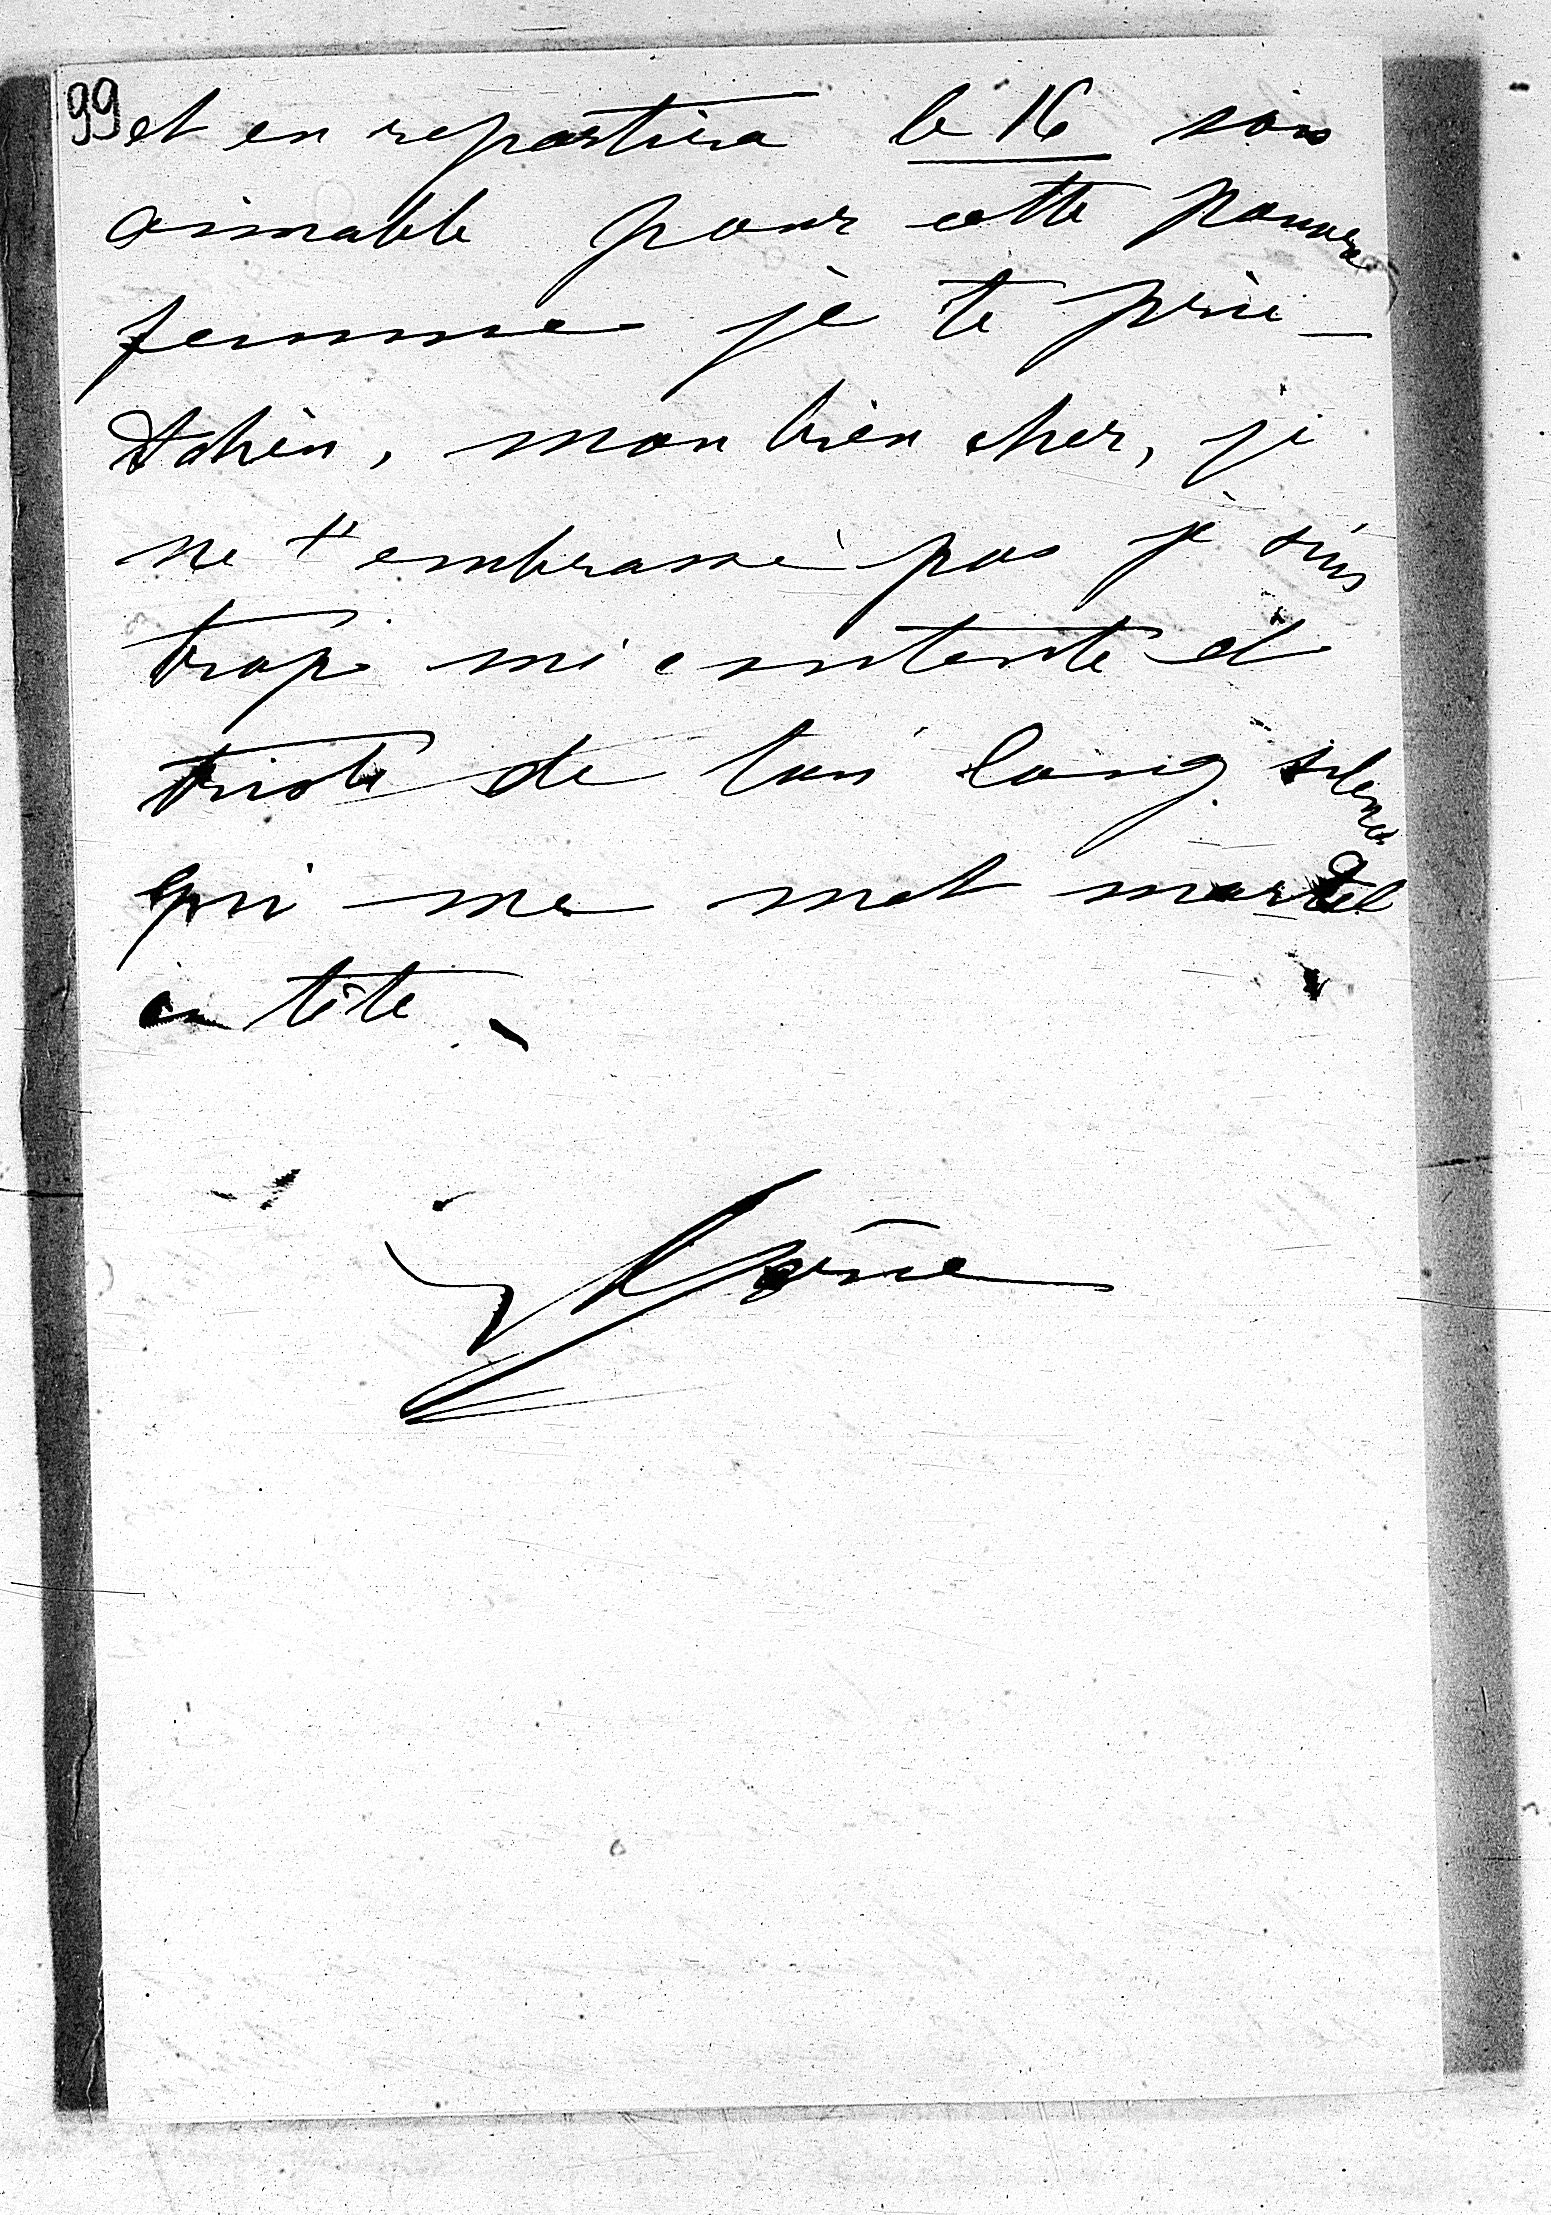 99 et en repartira le 16 sois
aimable pour cette pauvre
femme je te prie —
, mon bien cher, je
ne t'embrasse pas je suis
trop mécontente et
triste de ton long silence
qui me met martel
en tête.